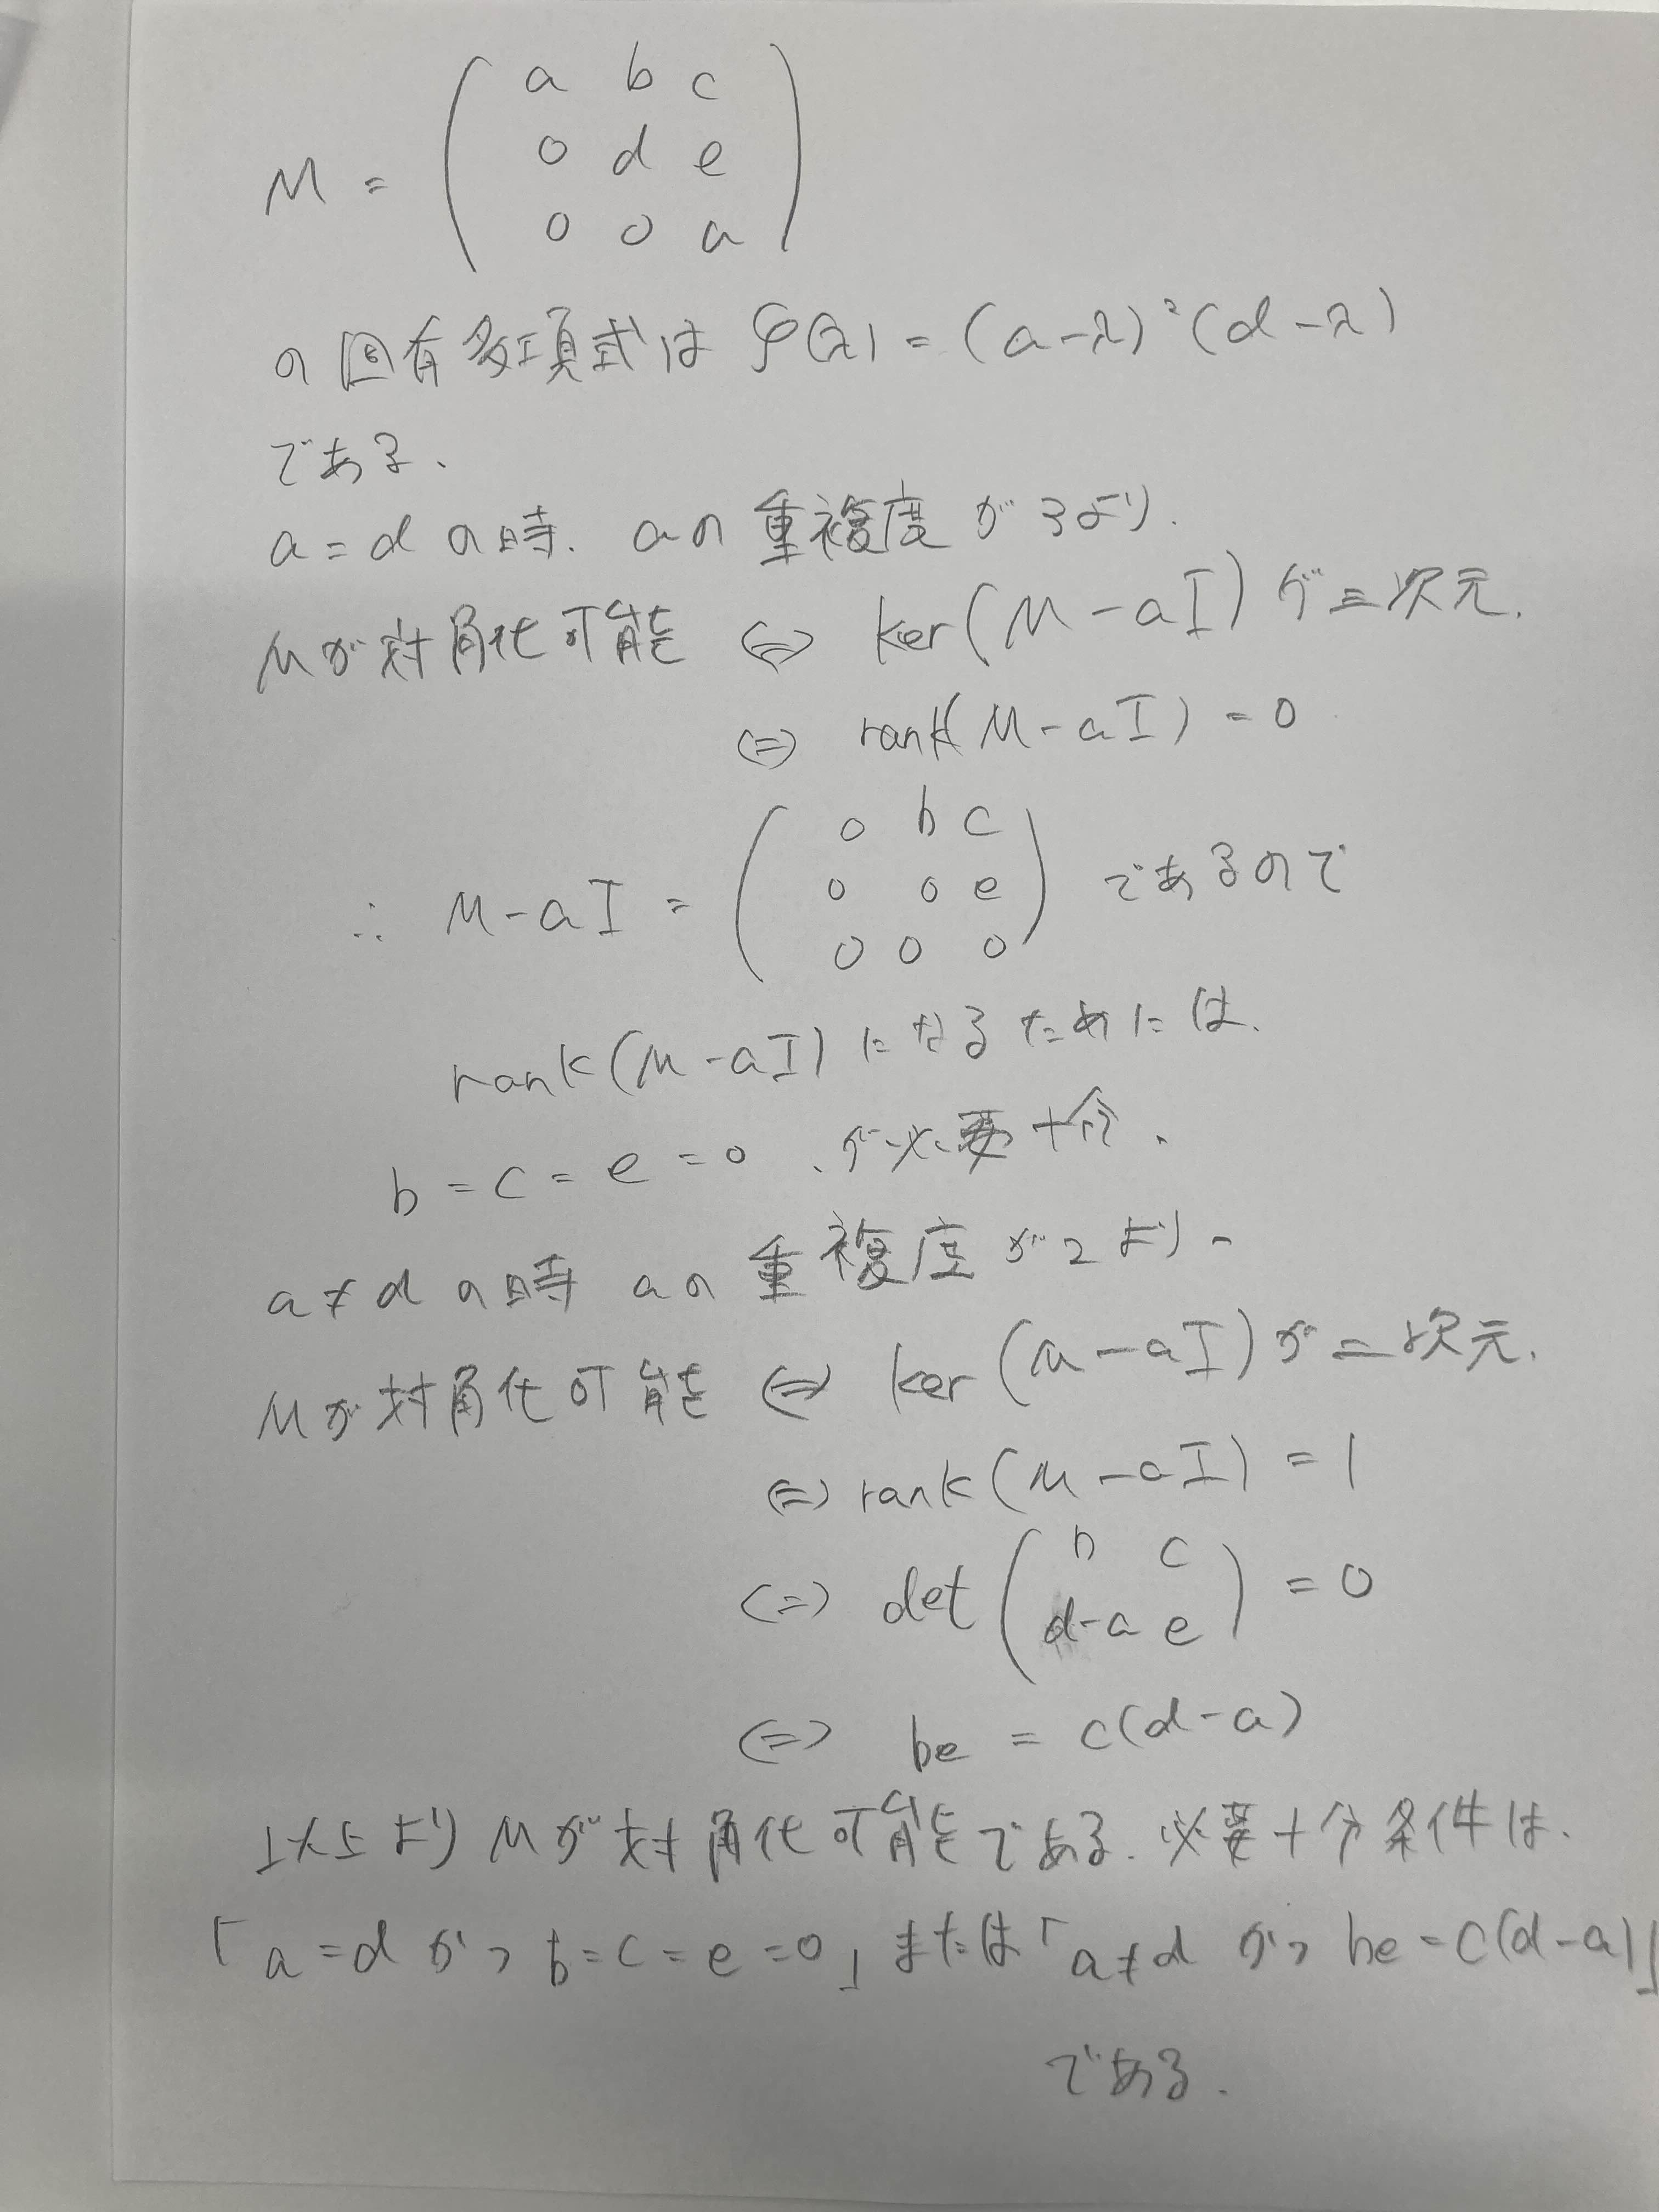 M = ( a b c
0 d e
0 0 a )
の固有多項式は φ(λ) = (a-λ)²(d-λ)
である.
a = d の時. aの重複度が3より.
Mが対角化可能 ⇔ ker(M-aI)が三次元.
⇔ rank(M-aI) = 0
∴ M-aI = ( 0 b c
0 0 e
0 0 0 ) であるので
rank(M-aI)になるためには.
b = c = e = 0 .が必要十分.
a≠d の時 aの重複度が2より、
Mが対角化可能 ⇔ ker(M-aI)が二次元.
⇔ rank(M-aI) = 1
⇔ det ( b c
d-a e ) = 0
⇔ be = c(d-a)
以上より Mが対角化可能である. 必要十分条件は.
「a=dかつ b=c=e=0」または「a≠d かつ be=c(d-a)」
である.